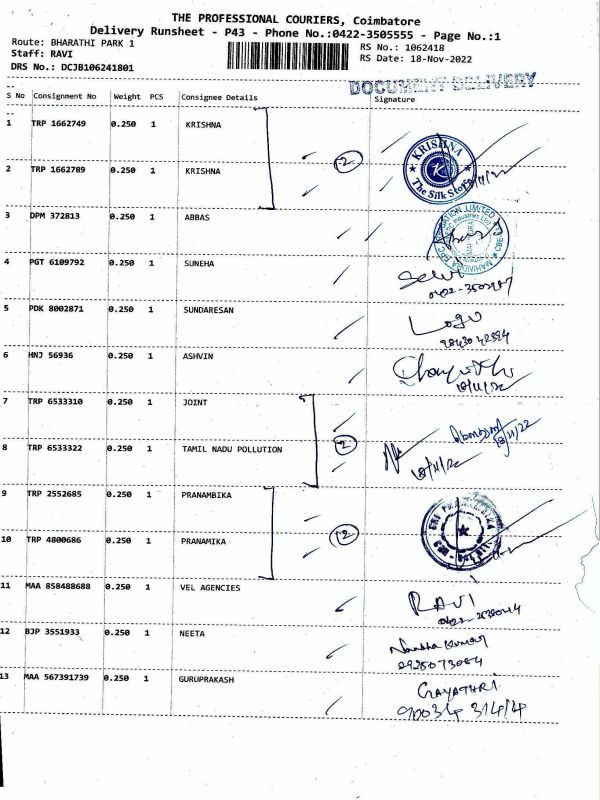 THE PROFESSIONAL COURIERS, Coimbatore
Delivery Runsheet - P43 - Phone No.:0422-3505555 - Page No.:1
Route: BHARATHI PARK 1
RS No.: 1062418
Staff: RAVI
RS Date: 18-Nov-2022
DRS No.: DCJB106241801
DOCUMENT DELIVERY
S No Consignment No Weight PCS Consignee Details Signature
1 TRP 1662749 0.250 1 KRISHNA
2
KRISHNA
The Silk Store
2 TRP 1662789 0.250 1 KRISHNA
3 DPM 372813 0.250 1 ABBAS
4 PGT 6109792 0.250 1 SUNEHA
Selvi
5 PDK 8002871 0.250 1 SUNDARESAN
Logu
6 HNJ 56936 0.250 1 ASHVIN
18/11/22
7 TRP 6533310 0.250 1 JOINT
2
18/11/22
8 TRP 6533322 0.250 1 TAMIL NADU POLLUTION
18/11/22
9 TRP 2552685 0.250 1 PRANAMBIKA
2
10 TRP 4800686 0.250 1 PRANAMIKA
11 MAA 858488688 0.250 1 VEL AGENCIES
RAVI
12 BJP 3551933 0.250 1 NEETA
Nandha Kumar
13 MAA 567391739 0.250 1 GURUPRAKASH
GAYATHRI
90034 31414